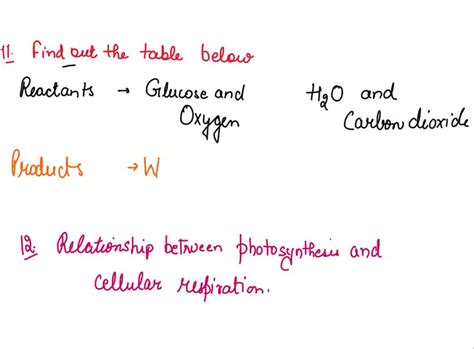 11. Find out the table below
Reactants → Glucose and Oxygen
H2O and Carbon dioxide
Products → W
12. Relationship between photosynthesis and
cellular respiration.